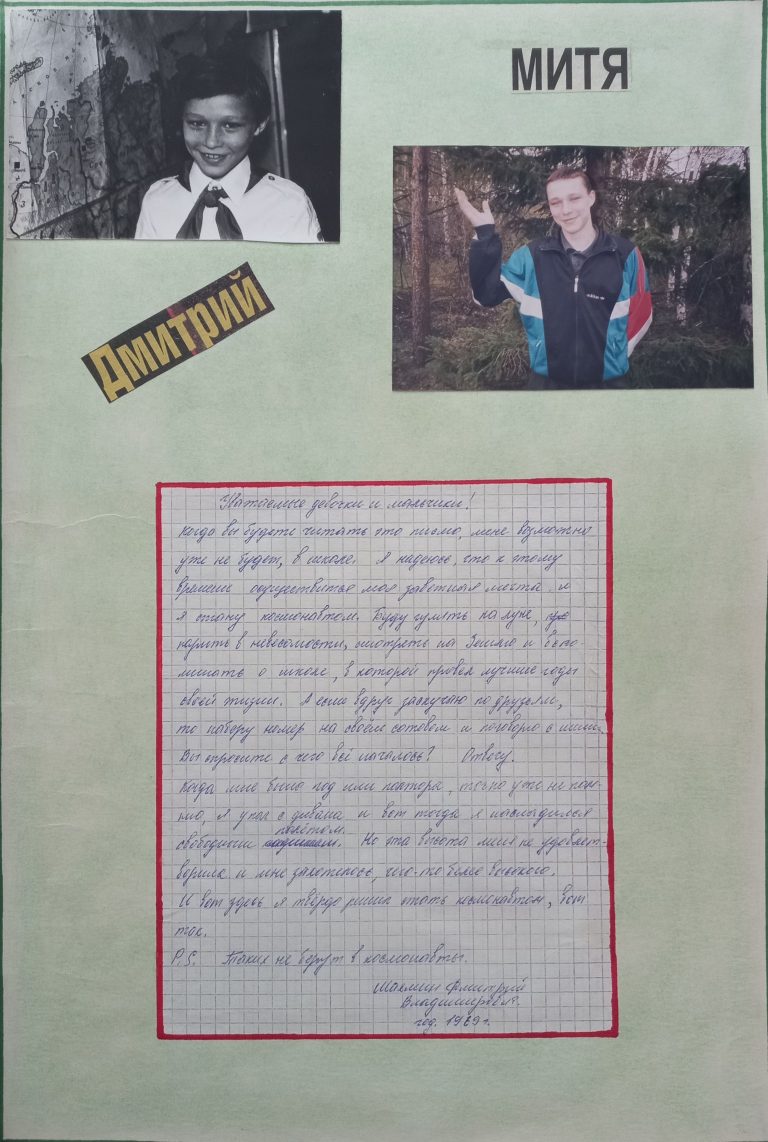 МИТЯ
Дмитрий
Уважаемые девочки и мальчики!
Когда вы будете читать это письмо, меня возможно
уже не будет, в школе. Я надеюсь, что к этому
времени осуществится моя заветная мечта и
я стану космонавтом. Буду гулять на луне,
в невесомости, смотреть на Землю и вспо-
минать о школе, в которой провёл лучшие годы
своей жизни. А если вдруг заскучаю по друзьям,
то наберу номер на своём сотовом и поговорю с ними.
Вы спросите с чего всё началось? Отвечу.
Когда мне было год или полтора, точно уже не пом-
ню, я упал с дивана и вот тогда я насладился
свободным полётом. Но эта высота меня не удовлет-
ворила и мне захотелось, чего-то более высокого.
И вот здесь я твёрдо решил стать космонавтом, вот
так.
P.S. Таких не берут в космонавты.
Дмитрий
Владимирович.
год. 1989 г.